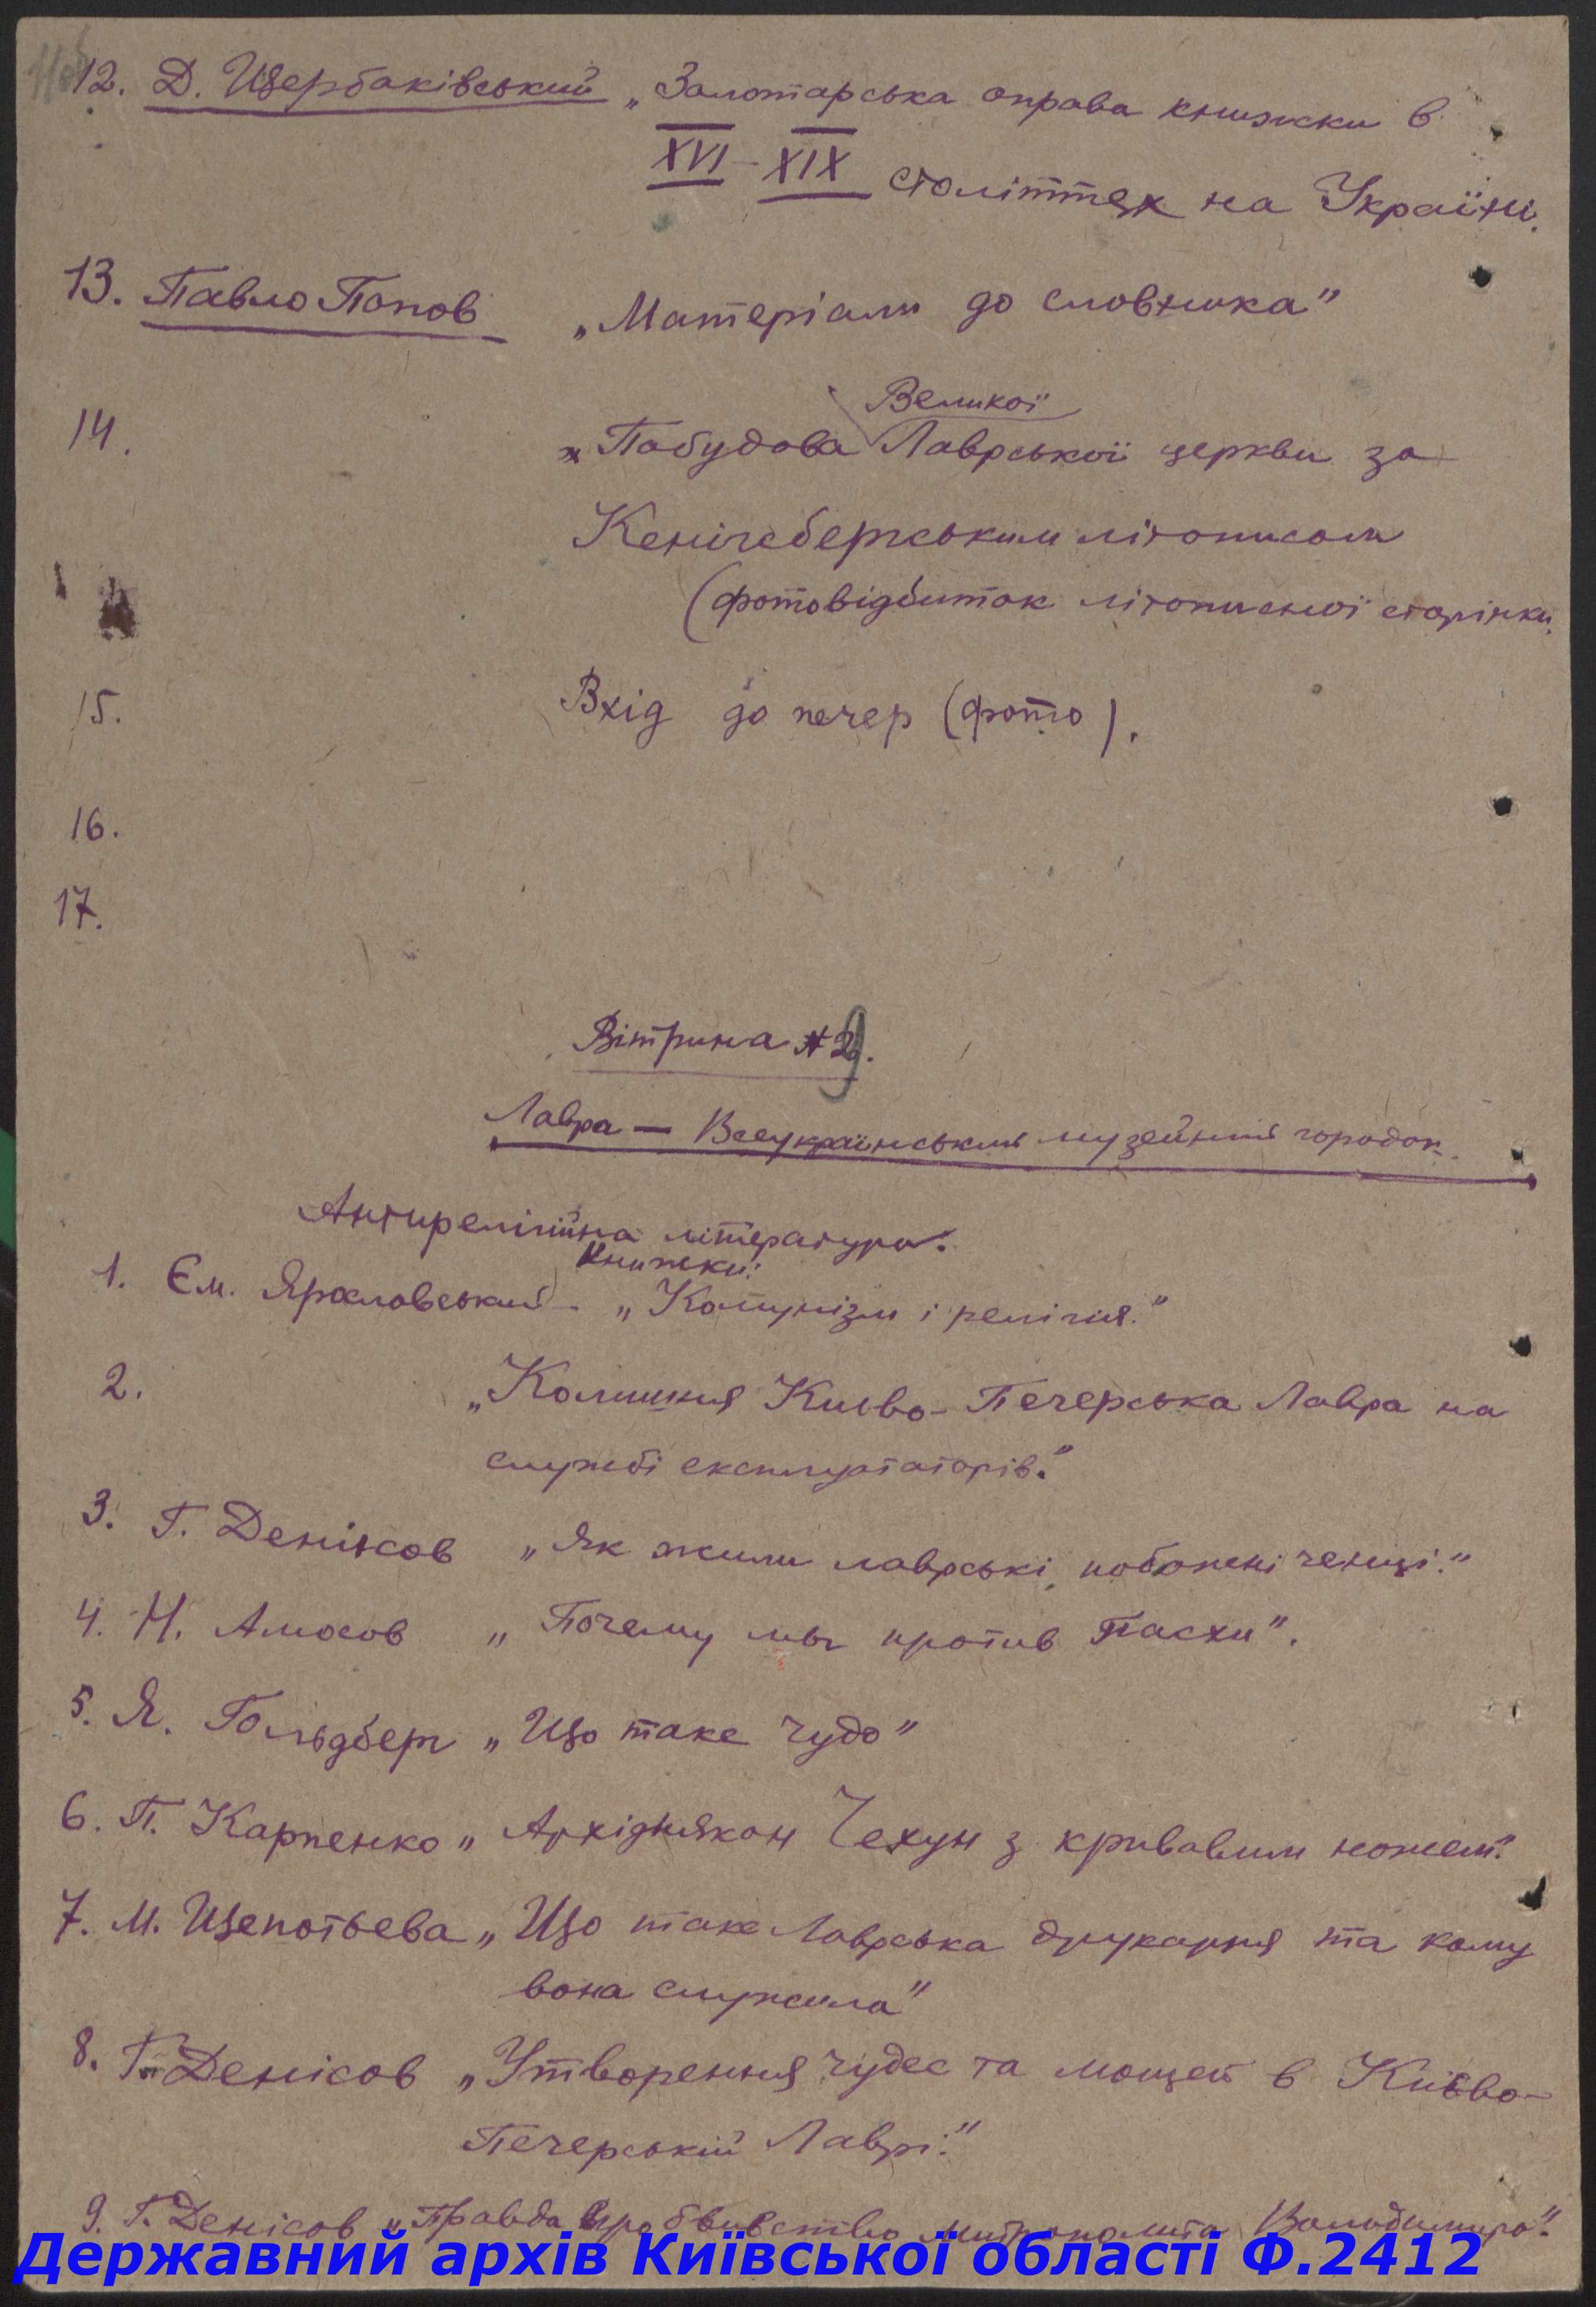 12. Д. Щербаківський „Золотарська оправа книжки в
XVI – XIX століттях на Україні.
13. Павло Попов „Матеріали до словника"
Великої
14. „Побудова Лаврської церкви за
Кенігсберзським літописом
(фотовідбиток літописної сторінки.
15. Вхід до печер (фото).
16.
17.
Вітрина № 9.
Лавра — Всеукраїнський музейний городок.
Антирелігійна література.
Книжки:
1. Єм. Ярославський – „Комунізм і релігія."
2. „Колишня Києво-Печерська Лавра на
службі експлуататорів."
3. Г. Денісов „Як жили лаврські побожні ченці."
4. Н. Амосов „Почему мы против Пасхи".
5. Я. Гольдберг „Що таке чудо"
6. П. Карпенко „Архідиякон Чехун з кривавим ножем."
7. М. Щепотьева „Що таке Лаврська друкарня та кому
вона служила"
8. Г. Денісов „Утворення чудес та мощей в Києво-
Печерській Лаврі."
9. Г. Денісов „Правда про вбивство митрополита Володимира".
Державний архів Київської області Ф.2412